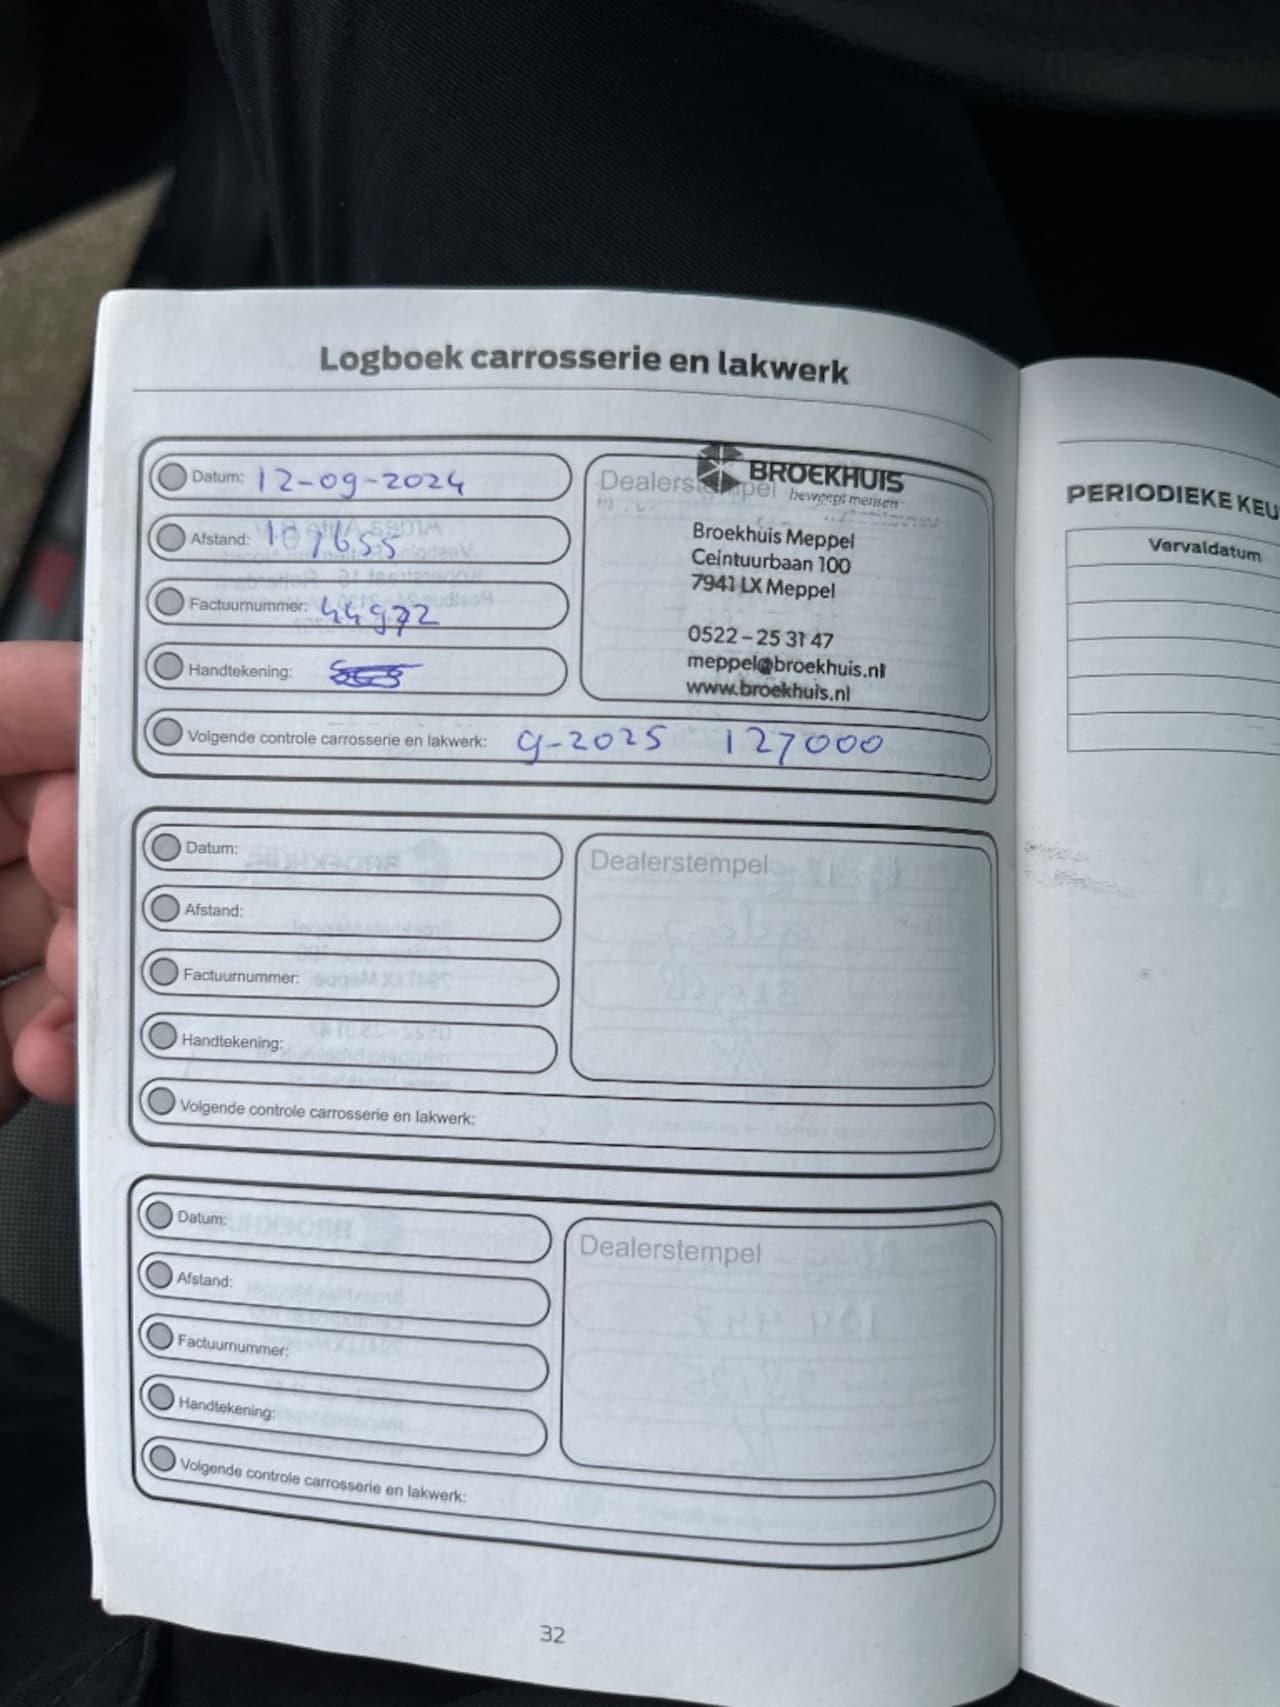 Logboek carrosserie en lakwerk
Datum: 12-09-2024
Afstand: 109655
Factuurnummer: 44972
Handtekening:
Dealerstempel
BROEKHUIS
beweegt mensen
Broekhuis Meppel
Ceintuurbaan 100
7941 LX Meppel
0522 – 25 31 47
meppel@broekhuis.nl
www.broekhuis.nl
Volgende controle carrosserie en lakwerk: 9-2025 127000
Datum:
Afstand:
Factuurnummer:
Handtekening:
Dealerstempel
Volgende controle carrosserie en lakwerk:
Datum:
Afstand:
Factuurnummer:
Handtekening:
Dealerstempel
Volgende controle carrosserie en lakwerk:
32
PERIODIEKE KEU
Vervaldatum